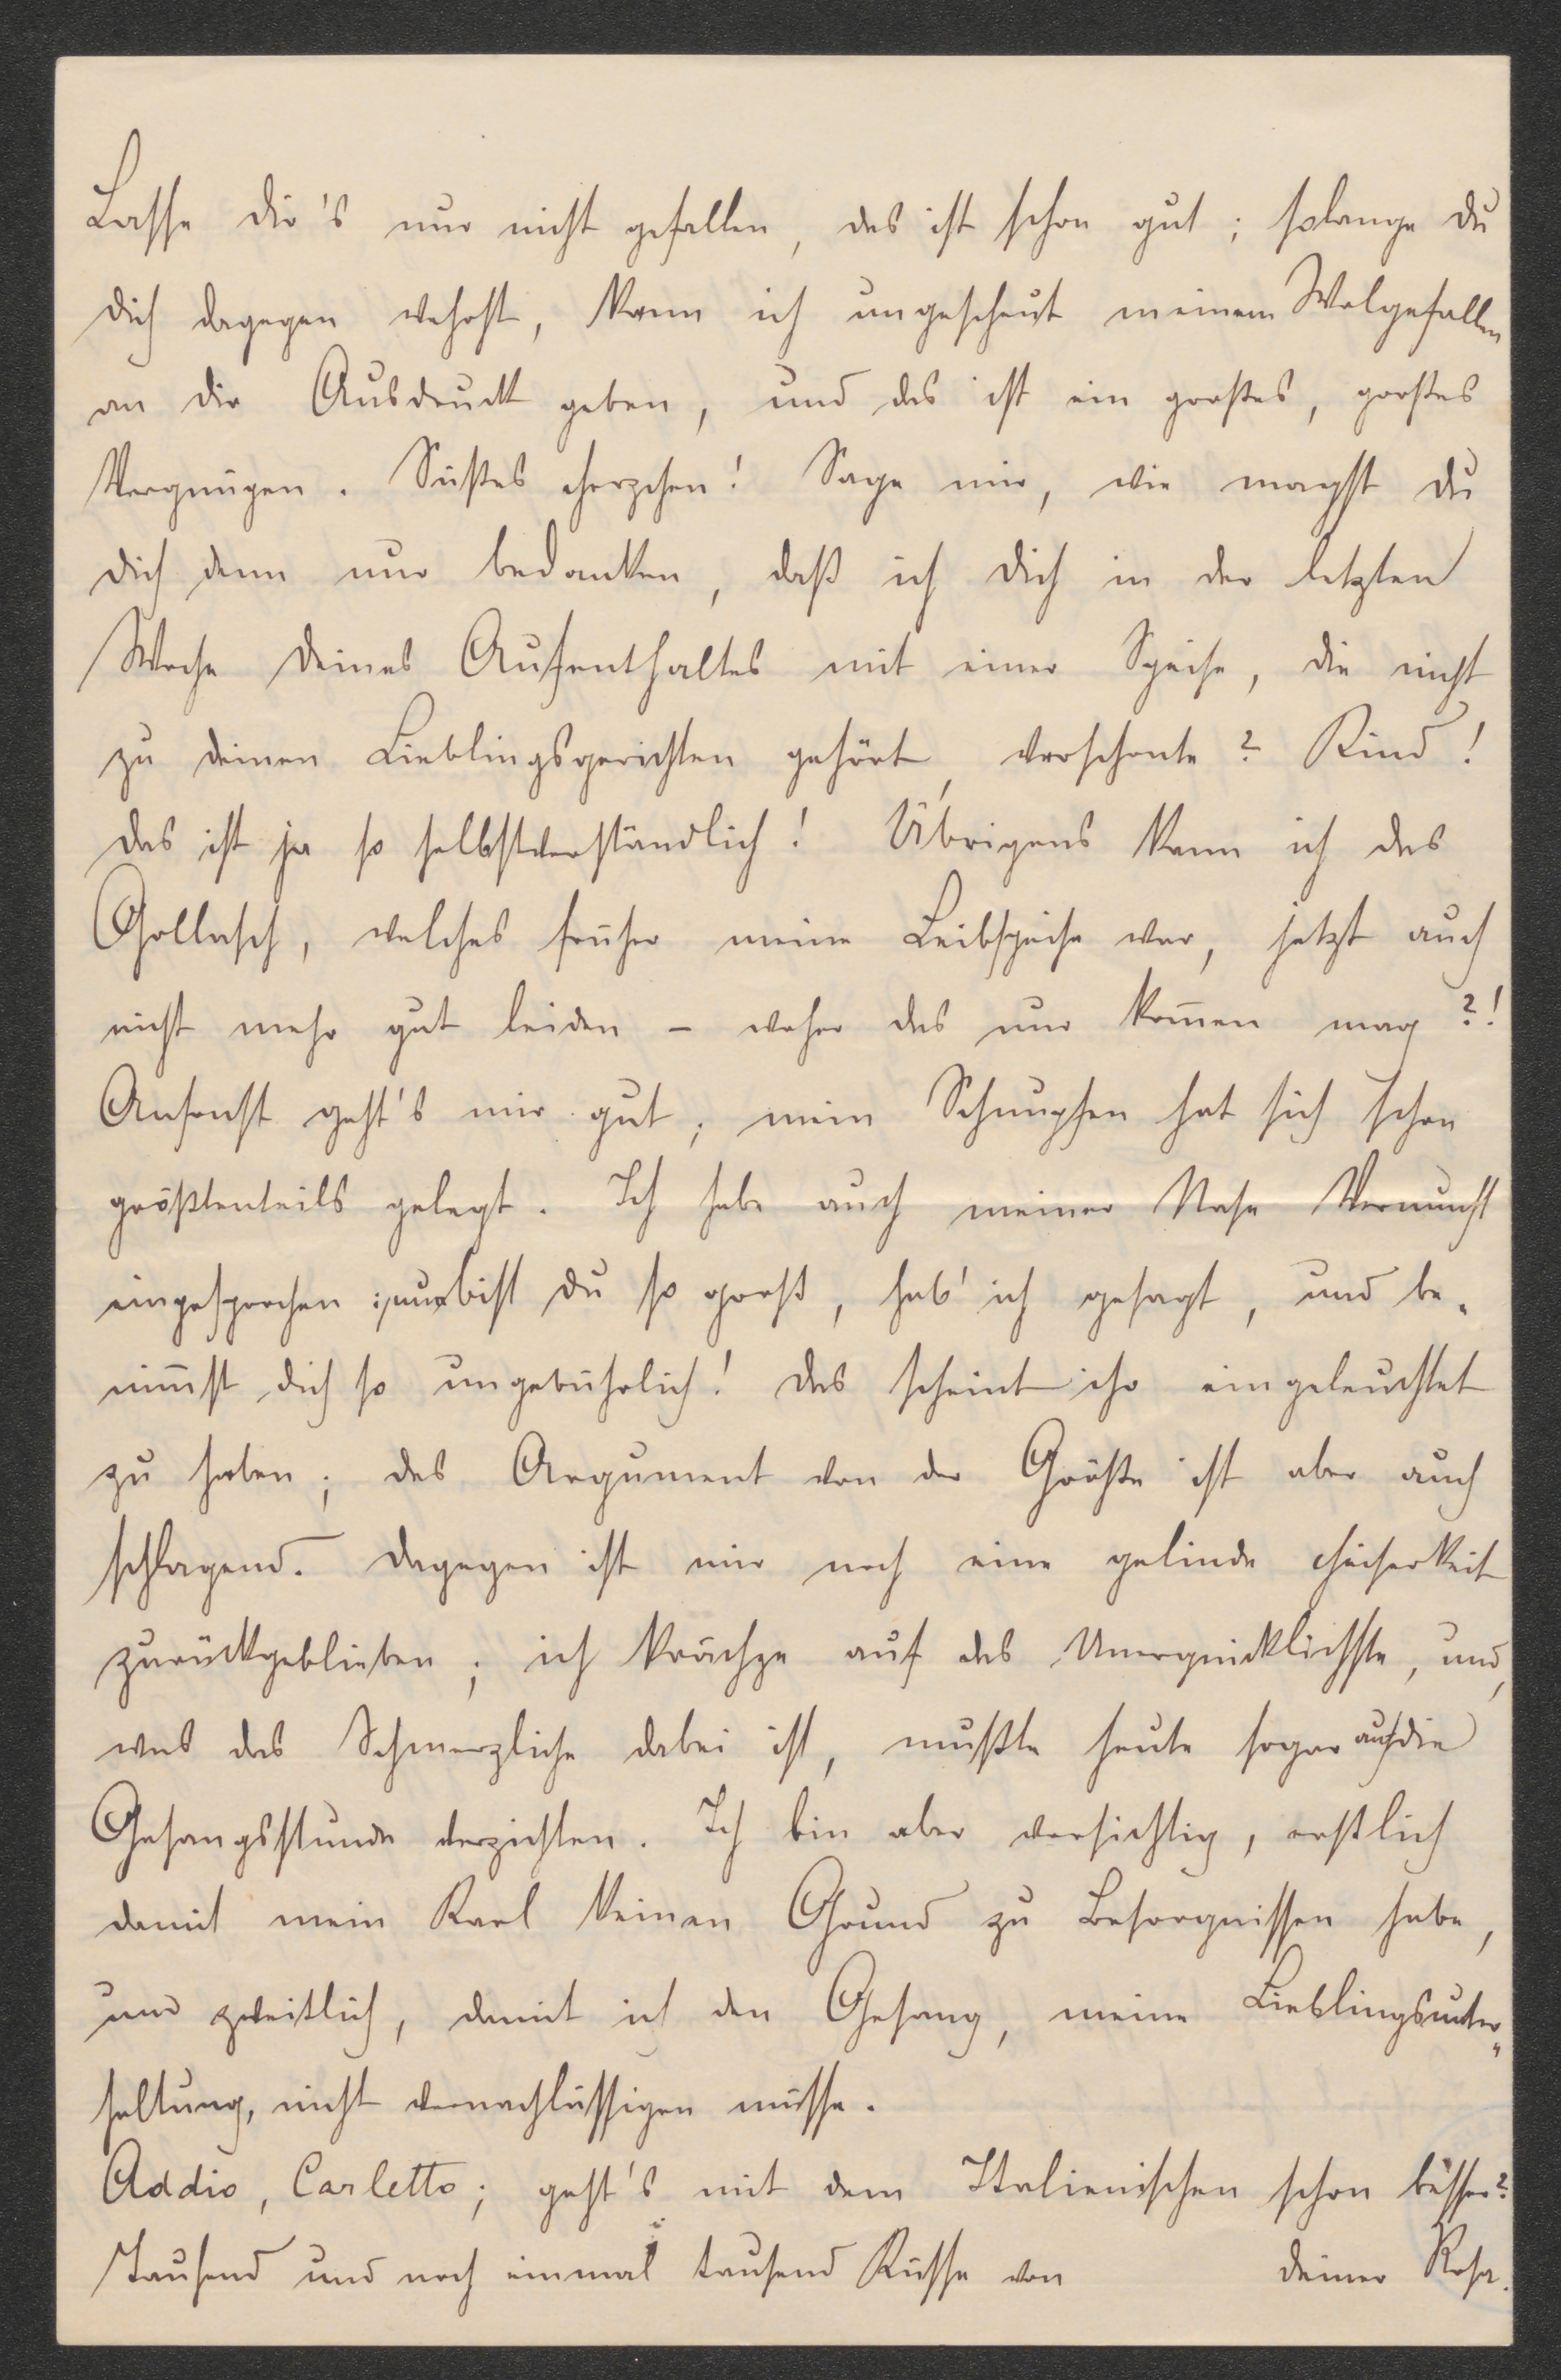 Lasse dir's nur nicht gefallen, das ist schon gut; solange du
dich dagegen wehrst, kann ich ungescheut meinem Wolgefallen
an dir Ausdruck geben, und das ist ein großes, großes
Vergnügen. Süßes Herzchen! Sage mir, wie magst du
dich denn nur bedanken, daß ich dich in der letzten
Woche deines Aufenthaltes mit einer Speise, die nicht
zu deinen Lieblingsgerichten gehört, verschonte? Kind!
das ist ja so selbstverständlich! Übrigens kann ich das
Gollasch, welches früher meine Leibspeise war, jetzt auch
nicht mehr gut leiden – woher das nur kom̅en mag?!
Ansonst geht's mir gut; mein Schnupfen hat sich schon
größtenteils gelegt. Ich habe auch meiner Nase Vernunft
eingesprochen; nun bist du so groß, hab' ich gesagt, und be-
nim̅st dich so ungebührlich! Das scheint ihr eingeleuchtet
zu haben; das Argument von der Größe ist aber auch
schlagend. Dagegen ist mir noch eine gelinde Heiserkeit
zurückgeblieben; ich krächze auf das Unerquicklichste, und,
was das Schmerzliche dabei ist, mußte heute sogar auf die
Gesangsstunde verzichten. Ich bin aber vorsichtig, erstlich
damit mein Karl keinen Grund zu Besorgnissen habe,
und zweitlich, damit ich den Gesang, meine Lieblingsunter-
haltung, nicht vernachlässigen müsse.
Addio, Carletto; geht's mit dem Italienischen schon besser?
Tausend und noch einmal tausend Küsse von deiner Rosa.